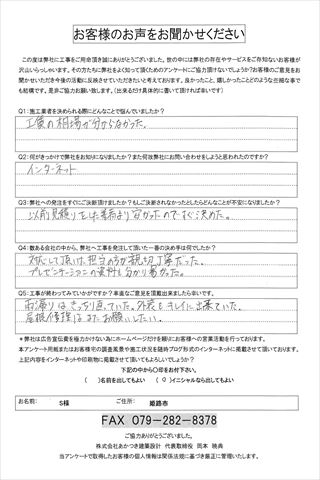 お客様のお声をお聞かせください
この度は弊社に工事をご用命頂き誠にありがとうございました。世の中には弊社の存在やサービスをご存知ないお客様が
沢山いらっしゃいます。その方たちに弊社をよく知って頂くためのアンケートにご協力頂けないでしょうか?お客様のご意見をお
聞かせいただき今後の活動に反映させていただきたいと考えております。良かったこと、嬉しかったことどのような些細な事で
も結構です。是非ご協力お願い致します。(出来るだけ具体的に書いて頂ければ幸いです)
Q1:施工業者を決められる際にどんなことで悩んでいましたか?
工賃の相場が分からなかった。
Q2:何がきっかけで弊社をお知りになりましたか?また何故弊社にお問い合わせをしようと思われたのですか?
インターネット
Q3:弊社への発注をすぐにご決断頂けましたか?もしご決断されなかったとしたらどんなことが不安になりましたか?
以前見積りをした業者より安かったのですぐ決めた。
Q4:数ある会社の中から、弊社へ工事を発注して頂いた一番の決め手は何でしたか?
対応して頂いた担当の方が親切丁寧だった。
プレゼンテーションの資料も分かり易かった。
Q5:工事が終わってみていかがですか?率直なご意見を頂戴出来ましたら幸いです。
雨漏りはきっちり直っていた。外装もキレイに出来ていた。
屋根修理はまたお願いしたい。
★弊社は広告宣伝費を極力かけない為にホームページだけを頼りにお客様への営業活動を行っております。
★本アンケート用紙またはお客様宅の調査風景や施工状況を随時ブログ形式のインターネットに掲載させて頂いております。
上記内容をインターネットや印刷物に掲載させて頂いてもよろしいでしょうか?
下記の中から〇印をお付け下さい。
( )名前を出してもよい (○)イニシャルなら出してもよい
お名前: S様 ご住所: 姫路市
FAX 079-282-8378
ご協力ありがとうございました。
株式会社あかつき建設工業 代表取締役 岡本 暁典
当アンケートで取得したお客様の個人情報は関係法規に基づき厳正に管理いたします。